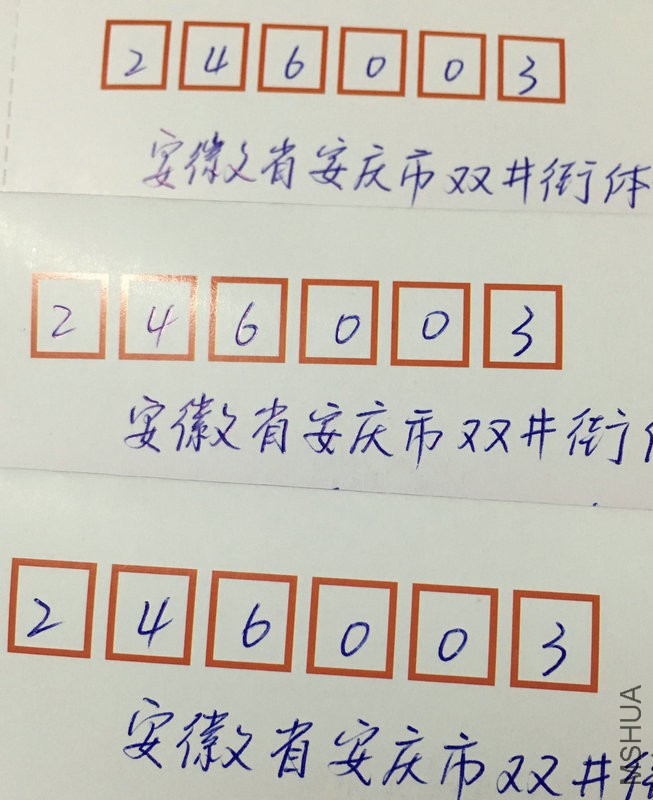 246003
安徽省安庆市双井街体
246003
安徽省安庆市双井街
246003
安徽省安庆市双井街
MSHUA